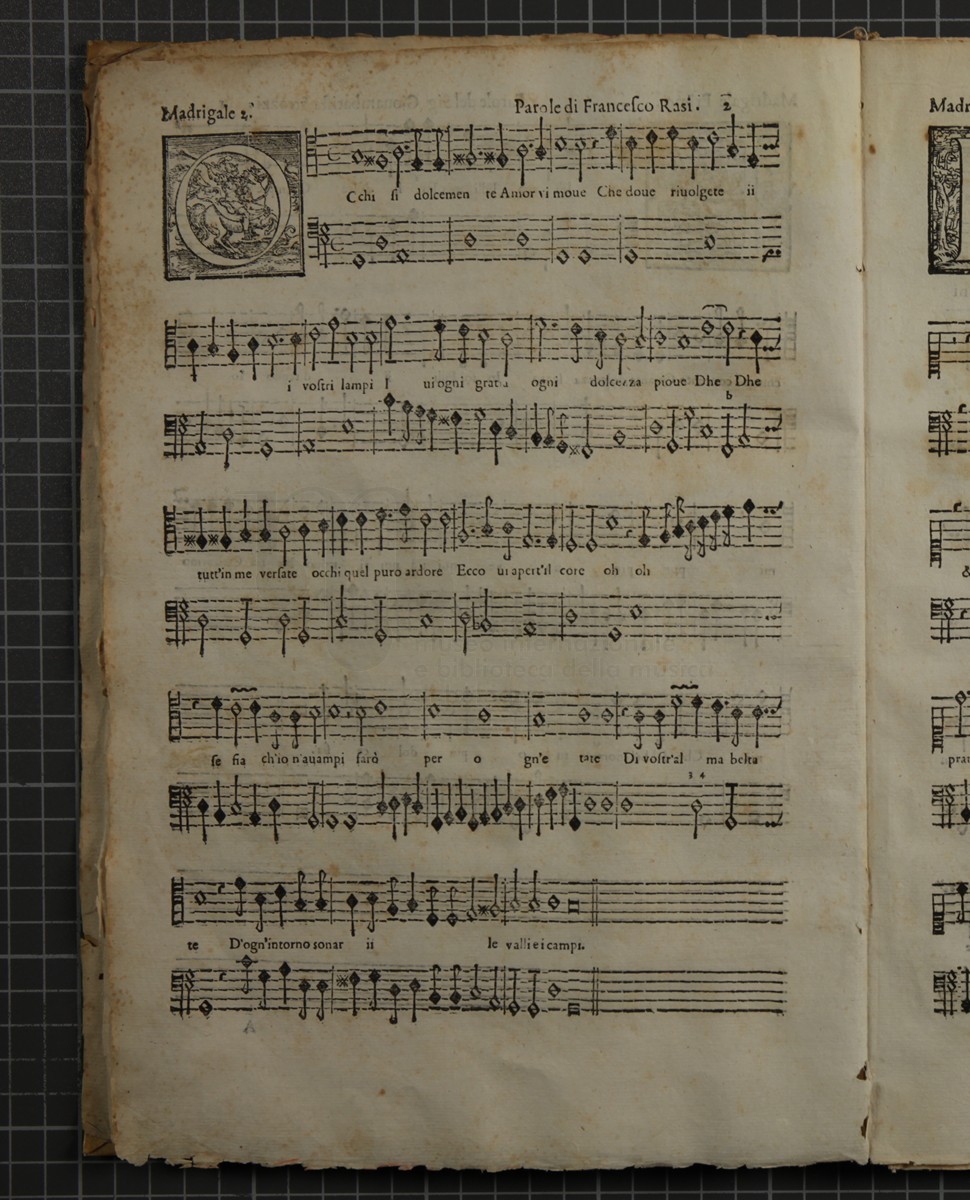 Madrigale 2. Parole di Francesco Rasi. 2
O
Cchi si dolcemen te Amor vi moue Che doue riuolgete ii
i vostri lampi I ui ogni grata ogni dolcezza pioue Dhe Dhe
b
tutt'in me versate occhi quel puro ardore Ecco ui apert'il core oh oh
se fia ch'io n'auampi farò per o gn'e tate Di vostr'al ma belta
3 4
te D'ogn'intorno sonar ii le valli e i campi.
Madr
&
prat
museo internazionale
e biblioteca della musica